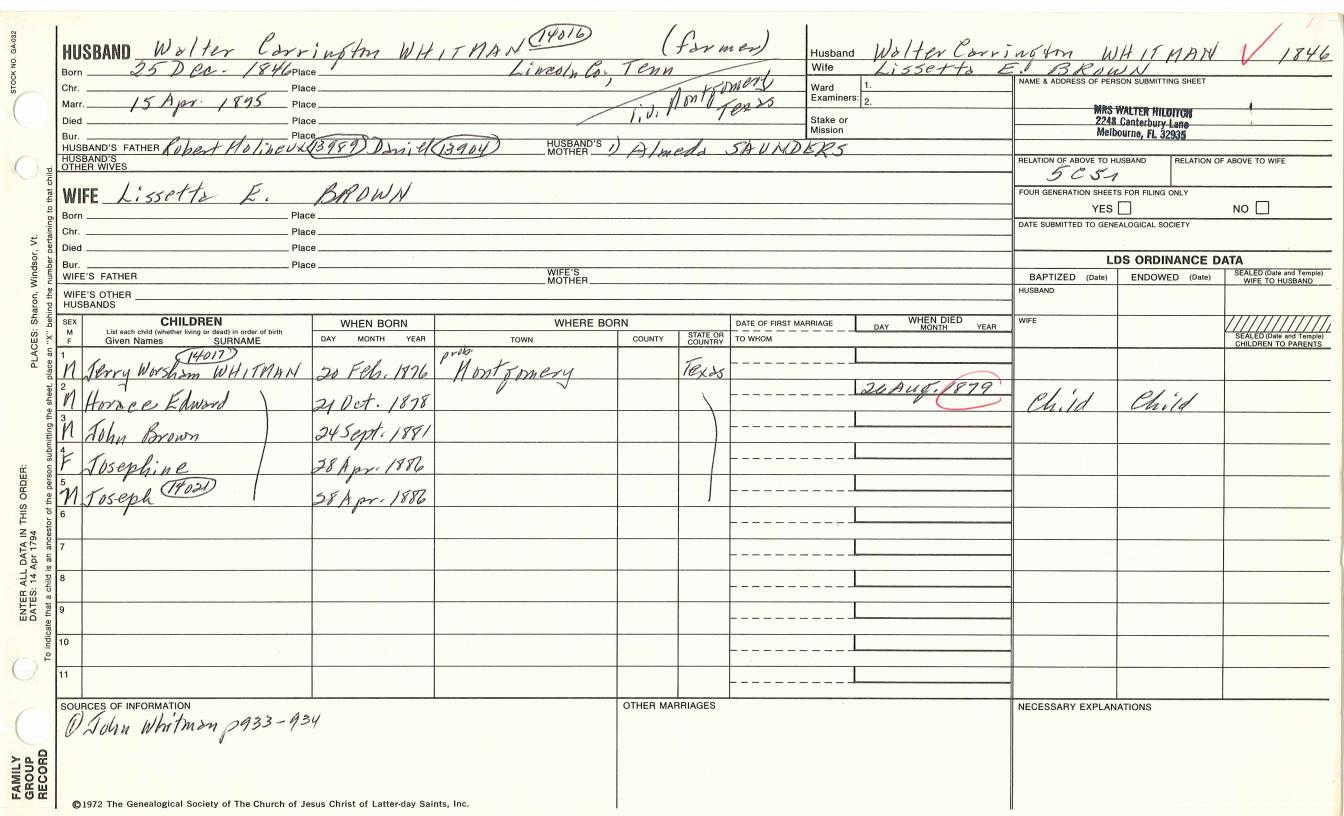 STOCK NO. GA-032
HUSBAND Walter Carrington WHITMAN 14016 (farmer)
Born 25 Dec. 1846 Place Lincoln Co, Tenn
Chr. Place
Marr. 15 Apr. 1895 Place
Died Place
Bur. Place
i.d. Montgomery
Texas
HUSBAND'S FATHER Robert Molineux 13989 13904 HUSBAND'S MOTHER 1) Almeda SAUNDERS
HUSBAND'S OTHER WIVES
WIFE Lissetta E. BROWN
Born Place
Chr. Place
Died Place
Bur. Place
WIFE'S FATHER WIFE'S MOTHER
WIFE'S OTHER HUSBANDS
Husband Walter Carrington WHITMAN ✓ 1846
Wife Lissetta E. BROWN
Ward 1.
Examiners: 2.
Stake or Mission
NAME & ADDRESS OF PERSON SUBMITTING SHEET
MRS WALTER HILDITCH
2248 Canterbury Lane
Melbourne, FL 32935
RELATION OF ABOVE TO HUSBAND RELATION OF ABOVE TO WIFE
5C5r
FOUR GENERATION SHEETS FOR FILING ONLY
YES NO
DATE SUBMITTED TO GENEALOGICAL SOCIETY
LDS ORDINANCE DATA
BAPTIZED (Date) ENDOWED (Date) SEALED (Date and Temple) WIFE TO HUSBAND
HUSBAND
WIFE
SEALED (Date and Temple) CHILDREN TO PARENTS
SEX M F CHILDREN WHEN BORN WHERE BORN DATE OF FIRST MARRIAGE WHEN DIED
List each child (whether living or dead) in order of birth
Given Names SURNAME DAY MONTH YEAR TOWN COUNTY STATE OR COUNTRY TO WHOM DAY MONTH YEAR
1 M Jerry Worsham WHITMAN 14017 20 Feb. 1876 prob Montgomery Texas
2 M Horace Edward 21 Oct. 1878 26 Aug. 1879 Child Child
3 M John Brown 24 Sept. 1881
4 F Josephine 28 Apr. 1886
5 M Joseph 14021 28 Apr. 1886
6
7
8
9
10
11
SOURCES OF INFORMATION
① John Whitman p933-934
OTHER MARRIAGES
NECESSARY EXPLANATIONS
©1972 The Genealogical Society of The Church of Jesus Christ of Latter-day Saints, Inc.
FAMILY
GROUP
RECORD
ENTER ALL DATA IN THIS ORDER:
DATES: 14 Apr 1794
PLACES: Sharon, Windsor, Vt.
To indicate that a child is an ancestor of the person submitting the sheet, place an "X" behind the number pertaining to that child.